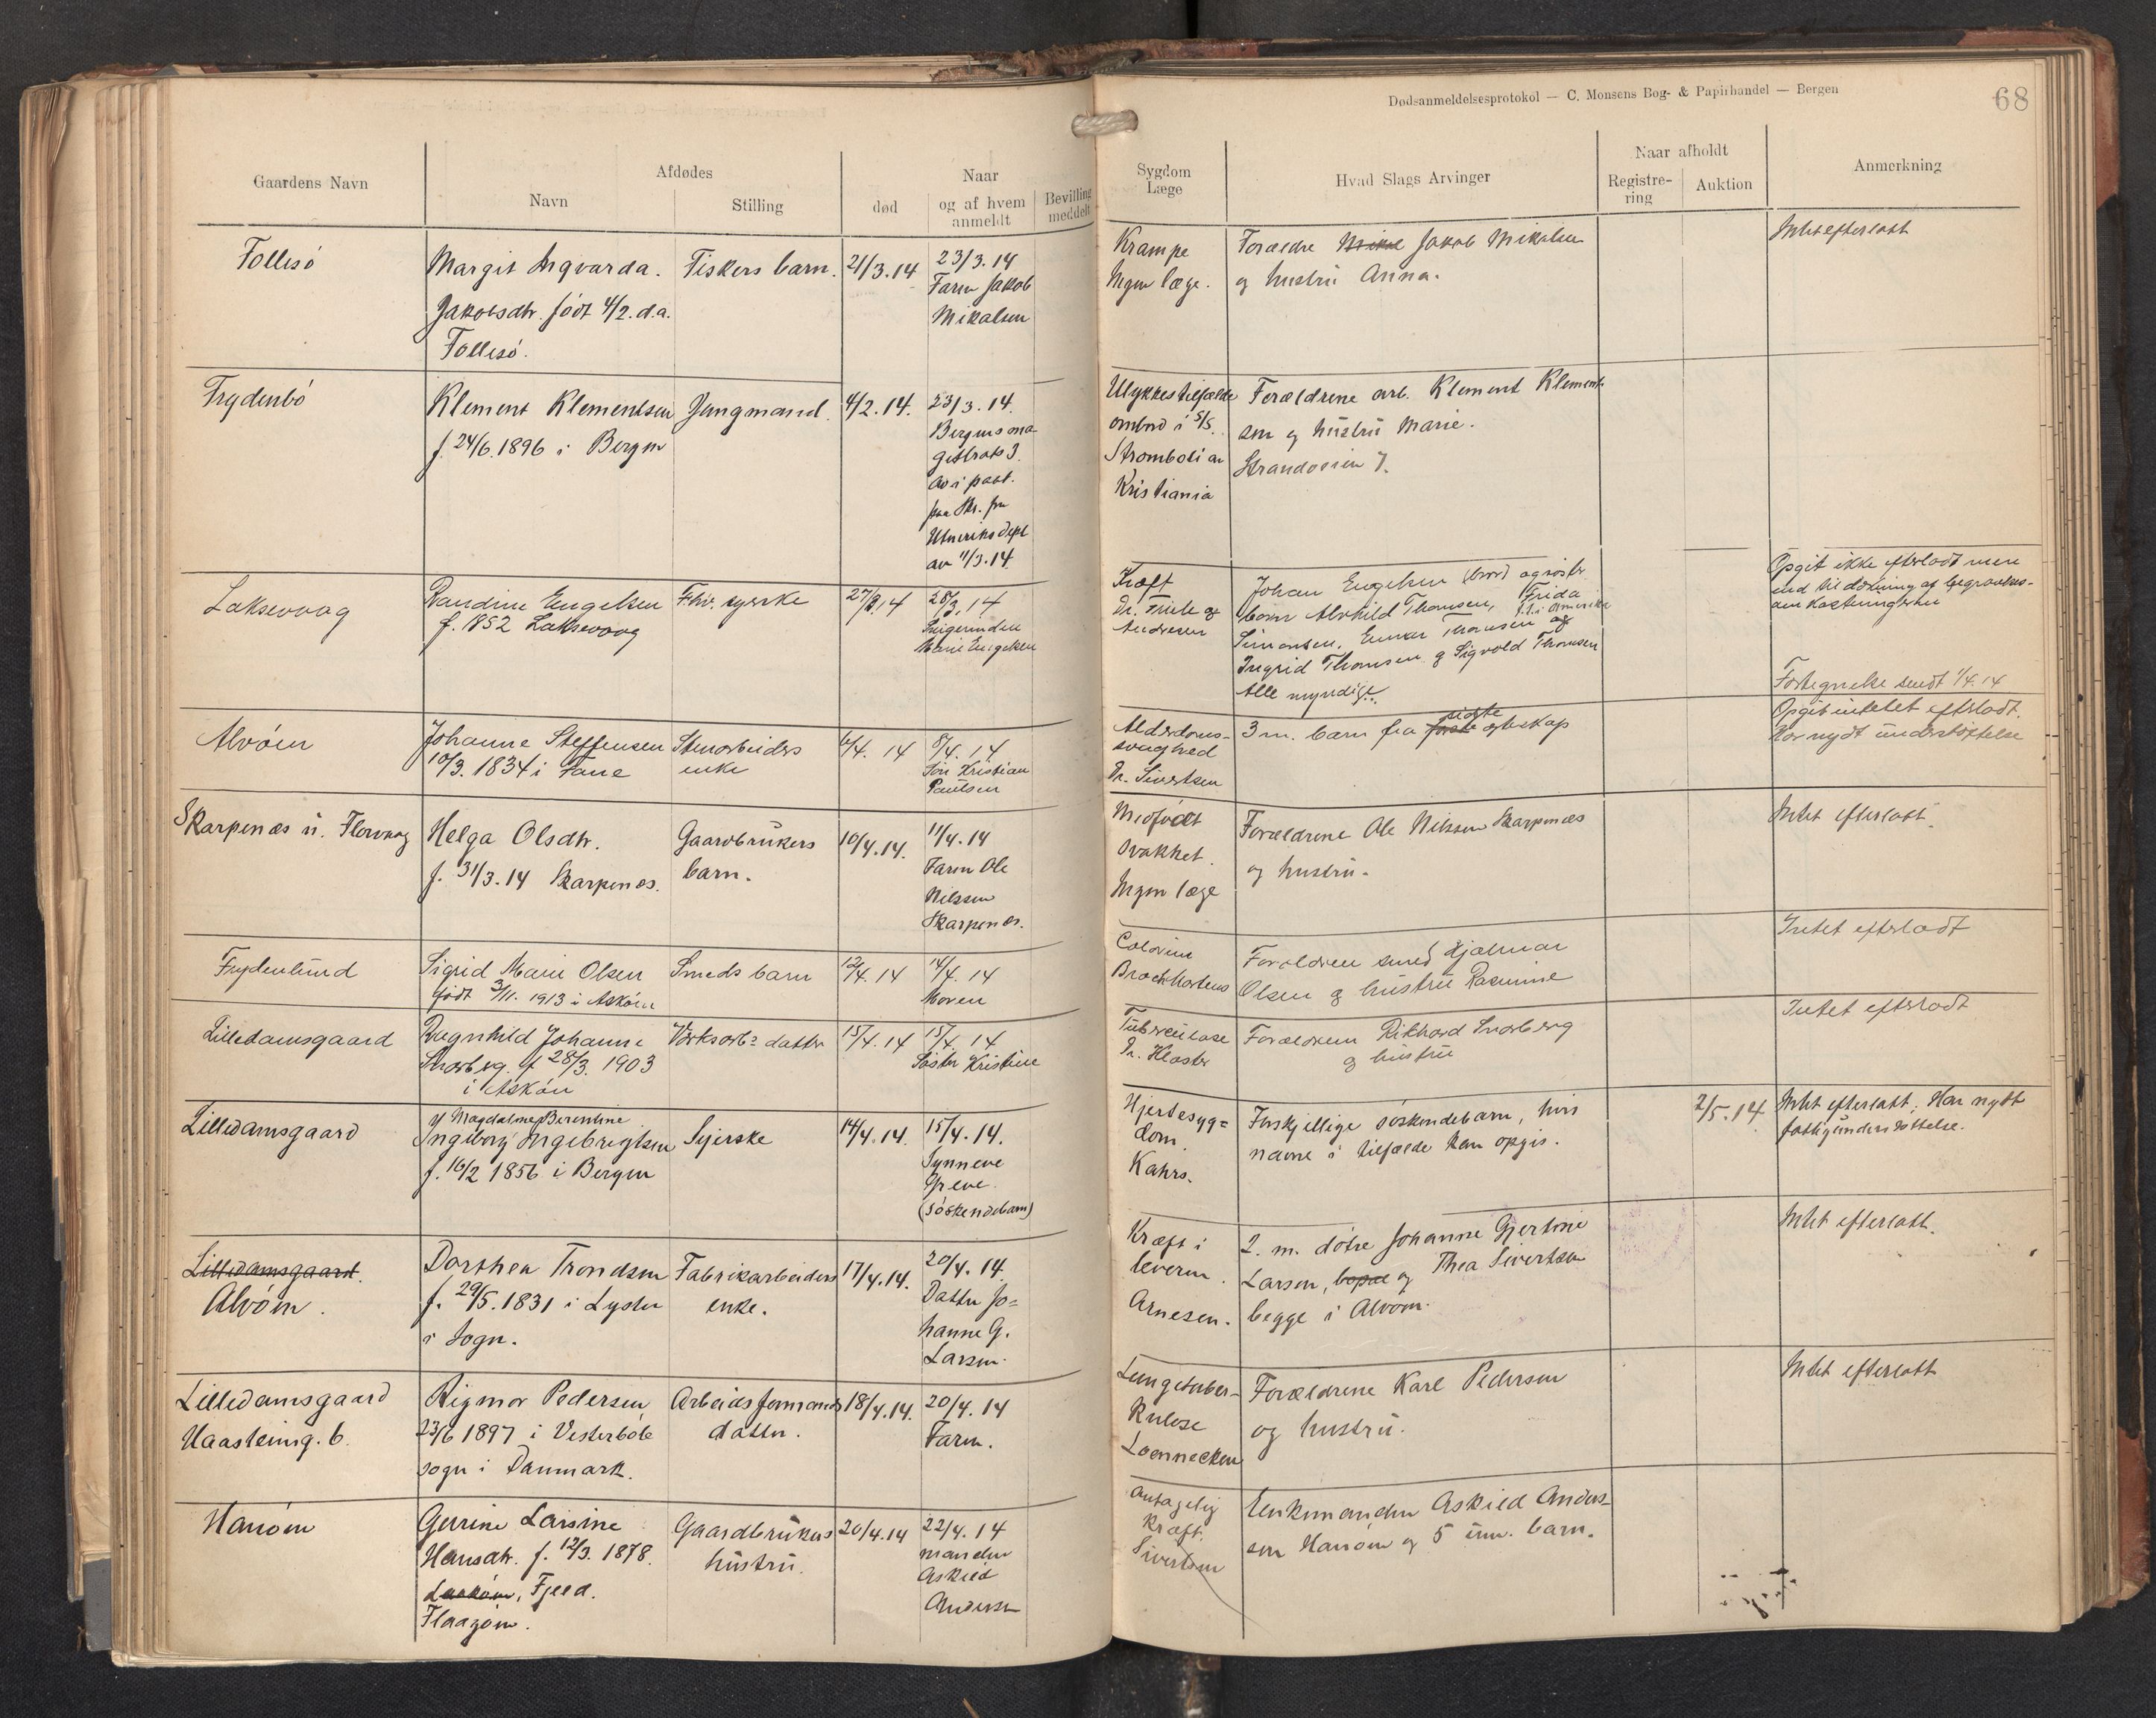 Dødsanmeldelsesprotokol — C. Monsens Bog- & Papirhandel — Bergen
68
Gaardens Navn
Afdødes
Navn
Stilling
død
Naar
og af hvem
anmeldt
Bevilling
meddelt
Sygdom
Læge
Hvad Slags Arvinger
Naar afholdt
Registre-
ring
Auktion
Anmerkning
Follesö
Margit Ingvarda.
Jakobsdtr. født 4/2. d.a.
Follesö.
Fiskers barn.
21/3.14
23/3.14
Faren Jakob
Mikalsen
Krampe
Ingen læge.
Forældre Mikal Jakob Mikalsen
og hustru Anna.
Intet efterlatt
Frydenbö
Klement Klementsen
f. 24/6.1896 i Bergen
Jungmand.
4/2.14.
23/3.14.
Bergens ma-
gistrats 3.
av i post.
paa Skr. fra
Utenriksdept
av 11/3.14.
Ulykkestilfælde
ombord i S/S.
Stromboli av
Kristiania
Forældrene arb. Klement Klement-
sen og hustru Marie.
Strandveien 7.
Laksevaag
Randine Engelsen
f. 1852 Laksevaag
Fhv. syerske
27/3.14
28/3.14
Svigerinden
Marie Engelsen
Kræft
Dr. Friele og
Andresen
Johan Engelsen (bror) og
barn Alvhild Thomsen, Frida
Simonsen, Einar Thomsen og
Ingrid Thomsen og Sigvold Thomsen
Alle myndige.
Opgit ikke efterladt mere
end til dækning af begravelses-
omkostningerne
Fortegnelse sendt 1/4.14
Alvöen
Johanne Steffensen
10/3.1834 i Fane
Stenarbeiders
enke
6/4.14
8/4.14
Sön Kristian
Paulsen
Alderdoms-
svaghed
Dr. Sivertsen
3 m. barn fra første sidste egteskap
Opgit intetet efterladt.
Har nydt understöttelse
Skarpenæs u. Florvaag
Helga Olsdtr.
f. 31/3.14 Skarpenæs.
Gaardbrukers
barn.
10/4.14.
11/4.14
Faren Ole
Nilssen
Skarpenæs.
Medfödt
svakhet.
Ingen læge
Forældrene Ole Nilssen Skarpenæs
og hustru.
Intet efterlatt.
Frydenlund
Sigrid Marie Olsen
født 3/11.1913 i Asköen
Smeds barn
12/4.14
14/4.14
Moren
Brock Martens
Forældrene smed Hjalmar
Olsen og hustru Rasmine
Intet efterladt
Lilledamsgaard
Ragnhild Johanne
Snarberg. f. 28/3.1903
i Asköen
Værksarbs datter
15/4.14
15/4.14
Söster Kristine
Tuberculose
Dr. Kloster
Forældrene Rikhard Snarberg
og hustru
Intet efterladt
Lilledamsgaard
Magdalene Berentine
Ingeborg Ingebrigtsen
f. 16/2 1856 i Bergen
Syerske
14/4.14.
15/4.14.
Synneve
Greve.
(söskendebarn)
Hjertesyg=
dom.
Kahrs.
Forskjellige söskendebarn, hvis
navne i tilfælde kan opgis.
2/5.14
Intet efterlatt; Har nydt
fattigunderstöttelse.
Lilledamsgaard.
Alvöen.
Dorthea Trondsen
f. 29/5.1831 i Lyster
i Sogn.
Fabrikarbeiders
enke.
17/4.14.
20/4.14.
Datter Jo=
hanne G.
Larsen.
Kræft i
leveren.
Arnesen.
2. m. dötre Johanne Gjertine
Larsen, bopæl og Thea Sivertsen
begge i Alvöen.
Intet efterlatt.
Lilledamsgaard
Haasteinsg. 6.
Rigmor Pedersen
23/6 1897 i Vesterböle
sogn i Danmark.
Arbeidsformands
datter.
18/4.14.
20/4.14
Faren.
Lungetuber-
kulose
Loennecken
Forældrene Karl Pedersen
og hustru.
Intet efterlatt
Hanöen
Gurine Larsine
Hansdtr. f. 12/3.1878.
Fjeld.
Flaagöen.
Gaardbrukers
hustru.
20/4.14
22/4.14
manden
Askild
Andersen
Antagelig
kræft.
Sivertsen
Enkemanden Askild Anders-
sen Hanöen og 5 um. barn.